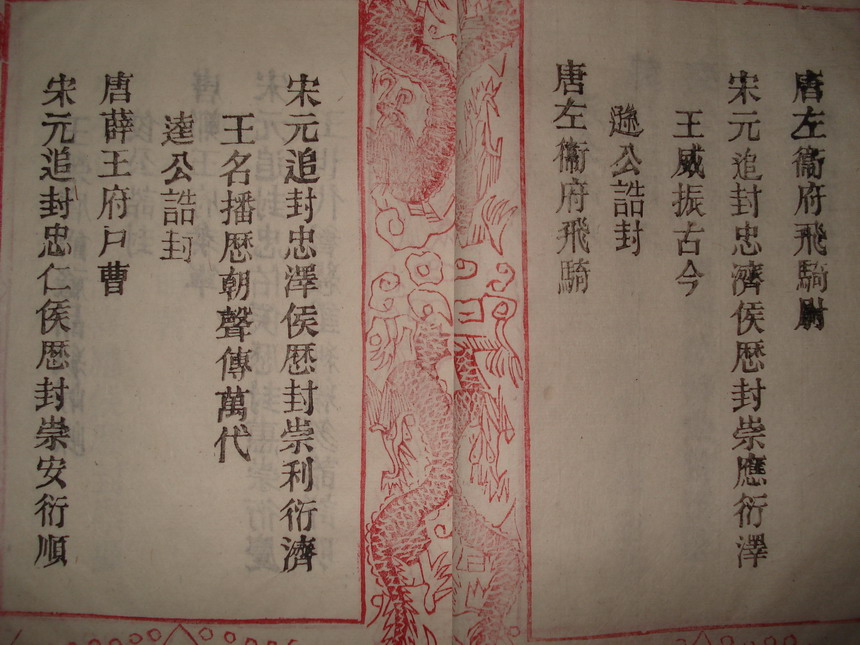 唐左衞府飛騎尉
宋元追封忠濟侯歴封崇應衍澤
王威振古今
遜公誥封
唐左衞府飛騎
宋元追封忠澤侯歴封崇利衍濟
王名播歴朝聲傳萬代
達公誥封
唐薛王府戸曹
宋元追封忠仁侯歴封崇安衍順